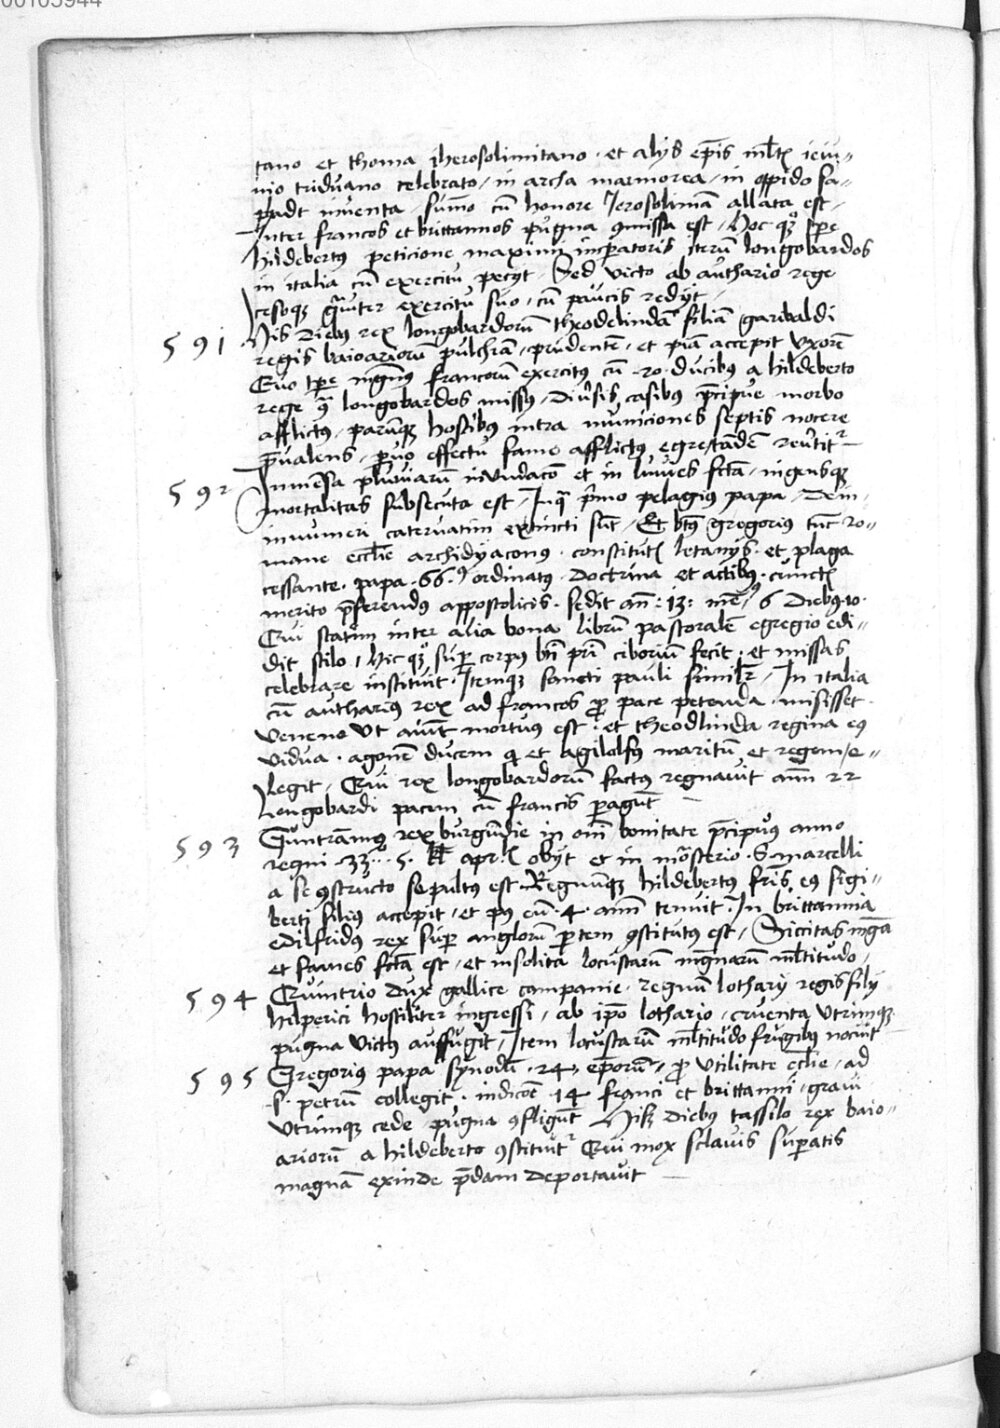 00105944
tano et thoma Jherosolimitano · et alijs ep̄is ml̄tꝭ ieiu-
nio triduano celebrato / in archa marmorea / in oppido sa-
phadt inventa · sum̄o cū honore Jerosolimā allata est /
Inter francos et brittannos pugna ꝯmissa est / Hoc qꝫ tp̄e
hildebertꝰ peticione maximi inꝑatoris iterū longobardos
in italia cū exercitu petijt · Sed victo ab authario rege
cesoqꝫ gͣuiter exercitu suo · cū paucis redijt /
591 His diebus rex longobardorū theodelindā filiā garibaldi
regis baioariorū pulchrā · prudentē · et piā accepit vxorē
Quo tp̄e mgnꝰ francorū exercitꝰ cū · 20 · ducibꝰ a hildeberto
rege ꝯͣ longobardos missꝰ / diūsis casibus p̄cipue morbo
afflictꝰ · parūqꝫ hostibus intra municiones septis nocere
p̄ualens / paruo effectu fame afflictꝰ egre tādē reūtitᷣ
592 Inmēsa pluuiarū inundacō et in luuies fctā / ingensqꝫ
mortalitas subsecuta est / Inqͣ pͥmo pelagius papa / dein
innumeri cateruatim extincti sūt / Et btūs gregorius tūc ro-
mane eccl̄ie archidyaconꝰ · constitutꝭ letanijs · et plaga
cessante · papa · 66 · ordinatꝰ · doctrina et actibꝰ · cunctꝭ
merito p̄ferendꝰ appostolicis · sedit an̄ : 13 : mē 6 diebꝰ 10 ·
Qui statim inter alia bona librū pastoralē egregio edi-
dit stilo / Hic qꝫ suꝑ corpꝰ bī pͥ ciborium fecit · et missas
celebrare instituit · Itemqꝫ sancti pauli similr̄ / In italia
cū autharius rex ad francos ꝓ pace petenda · misisset ·
veneno vt aiūt mortuꝰ est · et theodlinda regina eꝰ
vidua · agonē ducem q̇ et agilolfꝰ maritū et regem / e-
legit / Qui rex longobardorū factꝰ regnauit ann̄ 22
Longobardi pacem cū francis ꝑagūt
593 Guntramꝰ rex burgūdie in oīn bonitate p̄cipuꝰ anno
regni · 33 · 5 · kl̄ aprꝭ obijt et in mōsterio · S · marcelli
a se ꝯstructo sepultꝰ est · Regnūqꝫ hildebertꝰ fris̄ eꝰ sigi-
berti filius accepit / et pꝰ eū · 4 · ann̄ tenuit · In brittannia
edilfridus rex suꝑ anglorū ꝑtem ꝯstitutꝰ est / Siccitas mgā
et fames fctā est / et insolita locustarū mgnarū ml̄titudo /
594 Quintrio dux gallice campanie · regnū lotharij regis filij
hilperici hostiliter ingressꝰ / ab ip̄o lothario / cruenta vtrimqꝫ
pugna victꝰ auffugit / Item locustarū ml̄titudo frugibꝰ nocuit
595 Gregorius papa synodū · 24 · ep̄orū / ꝓ vtilitate eccl̄ie / ad
s · petrum collegit · indict̄ · 14 · franci et brittanni / graui
vtrimqꝫ cede / pugna ꝯfligūt Hisꝫ diebus tassilo rex baio-
ariorū a hildeberto ꝯstituitᷣ Qui mox sclauis suꝑatis
magnā exinde p̄dam deportauit